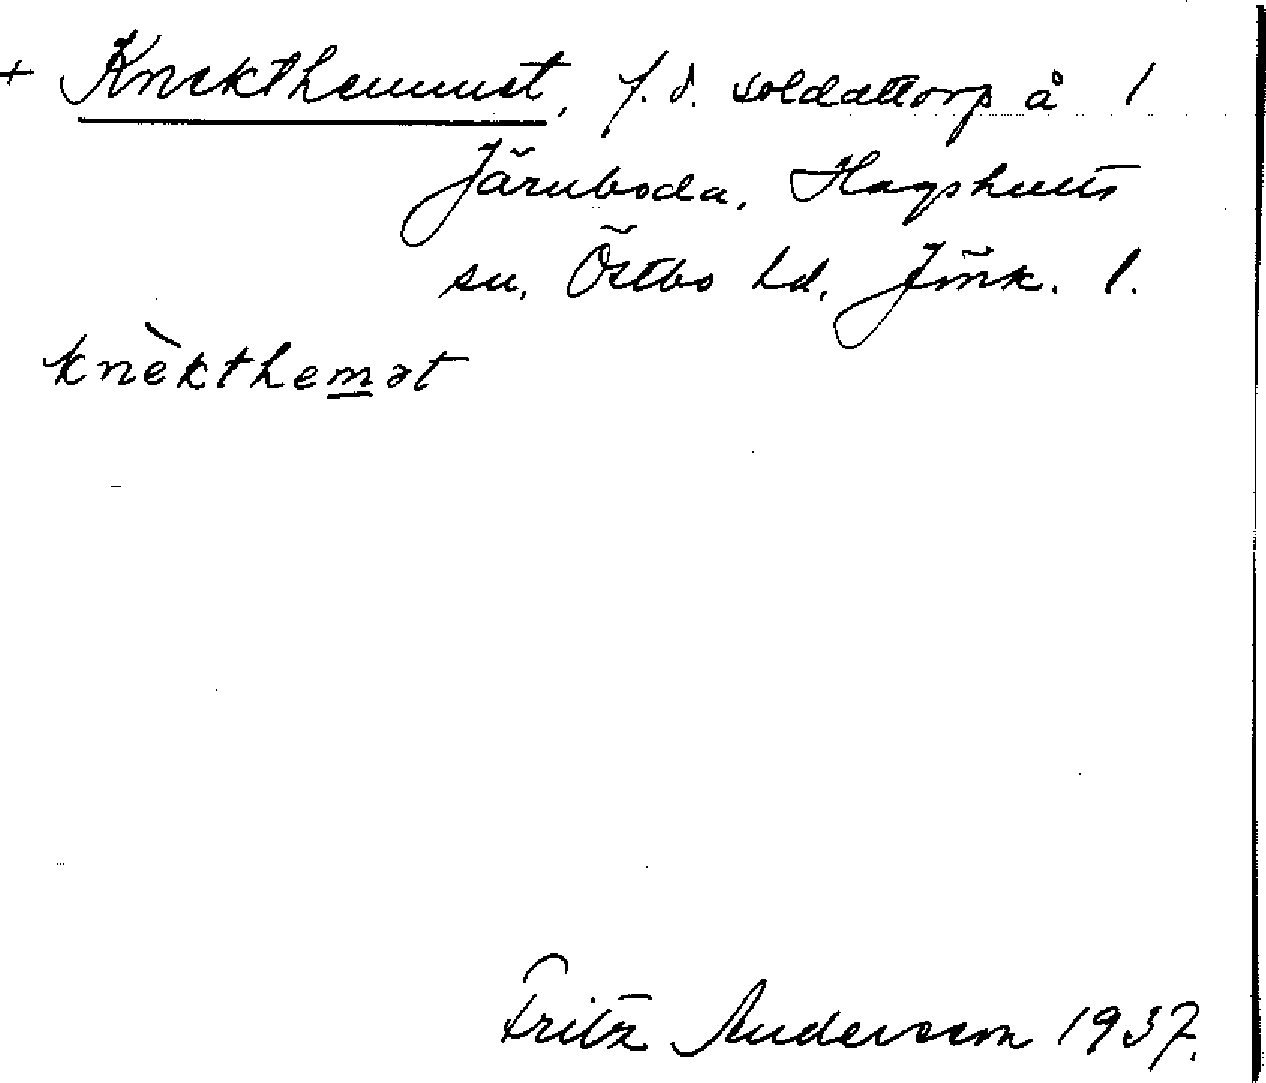 + Knekthemmet, f.d. soldattorp å 1
Järnboda, Hagshults
sn, Östbo hd, Jönk. l.
knèkthemət
Fritz Andersson 1937.